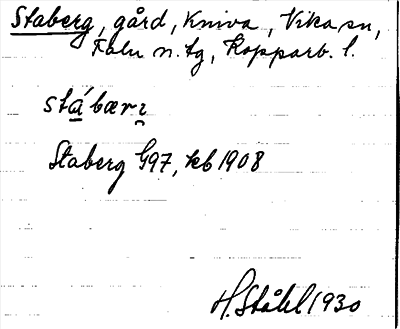 Staberg, gård, Kniva, Vika sn,
Falu n. tg, Kopparb. l.
stábærɩ
Staberg G97, kb 1908
H. Ståhl 1930